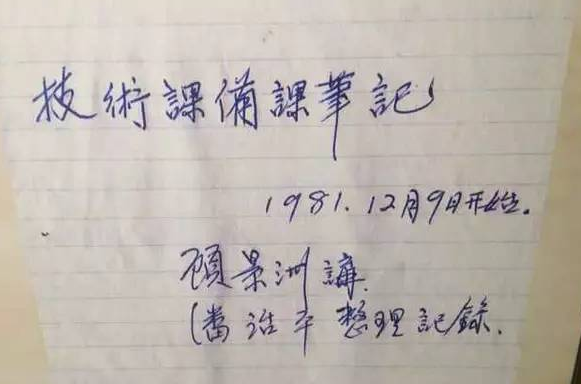 技術課備課筆記
1981.12月9日开始.
顾景洲講.
(潘诰平整理記録.